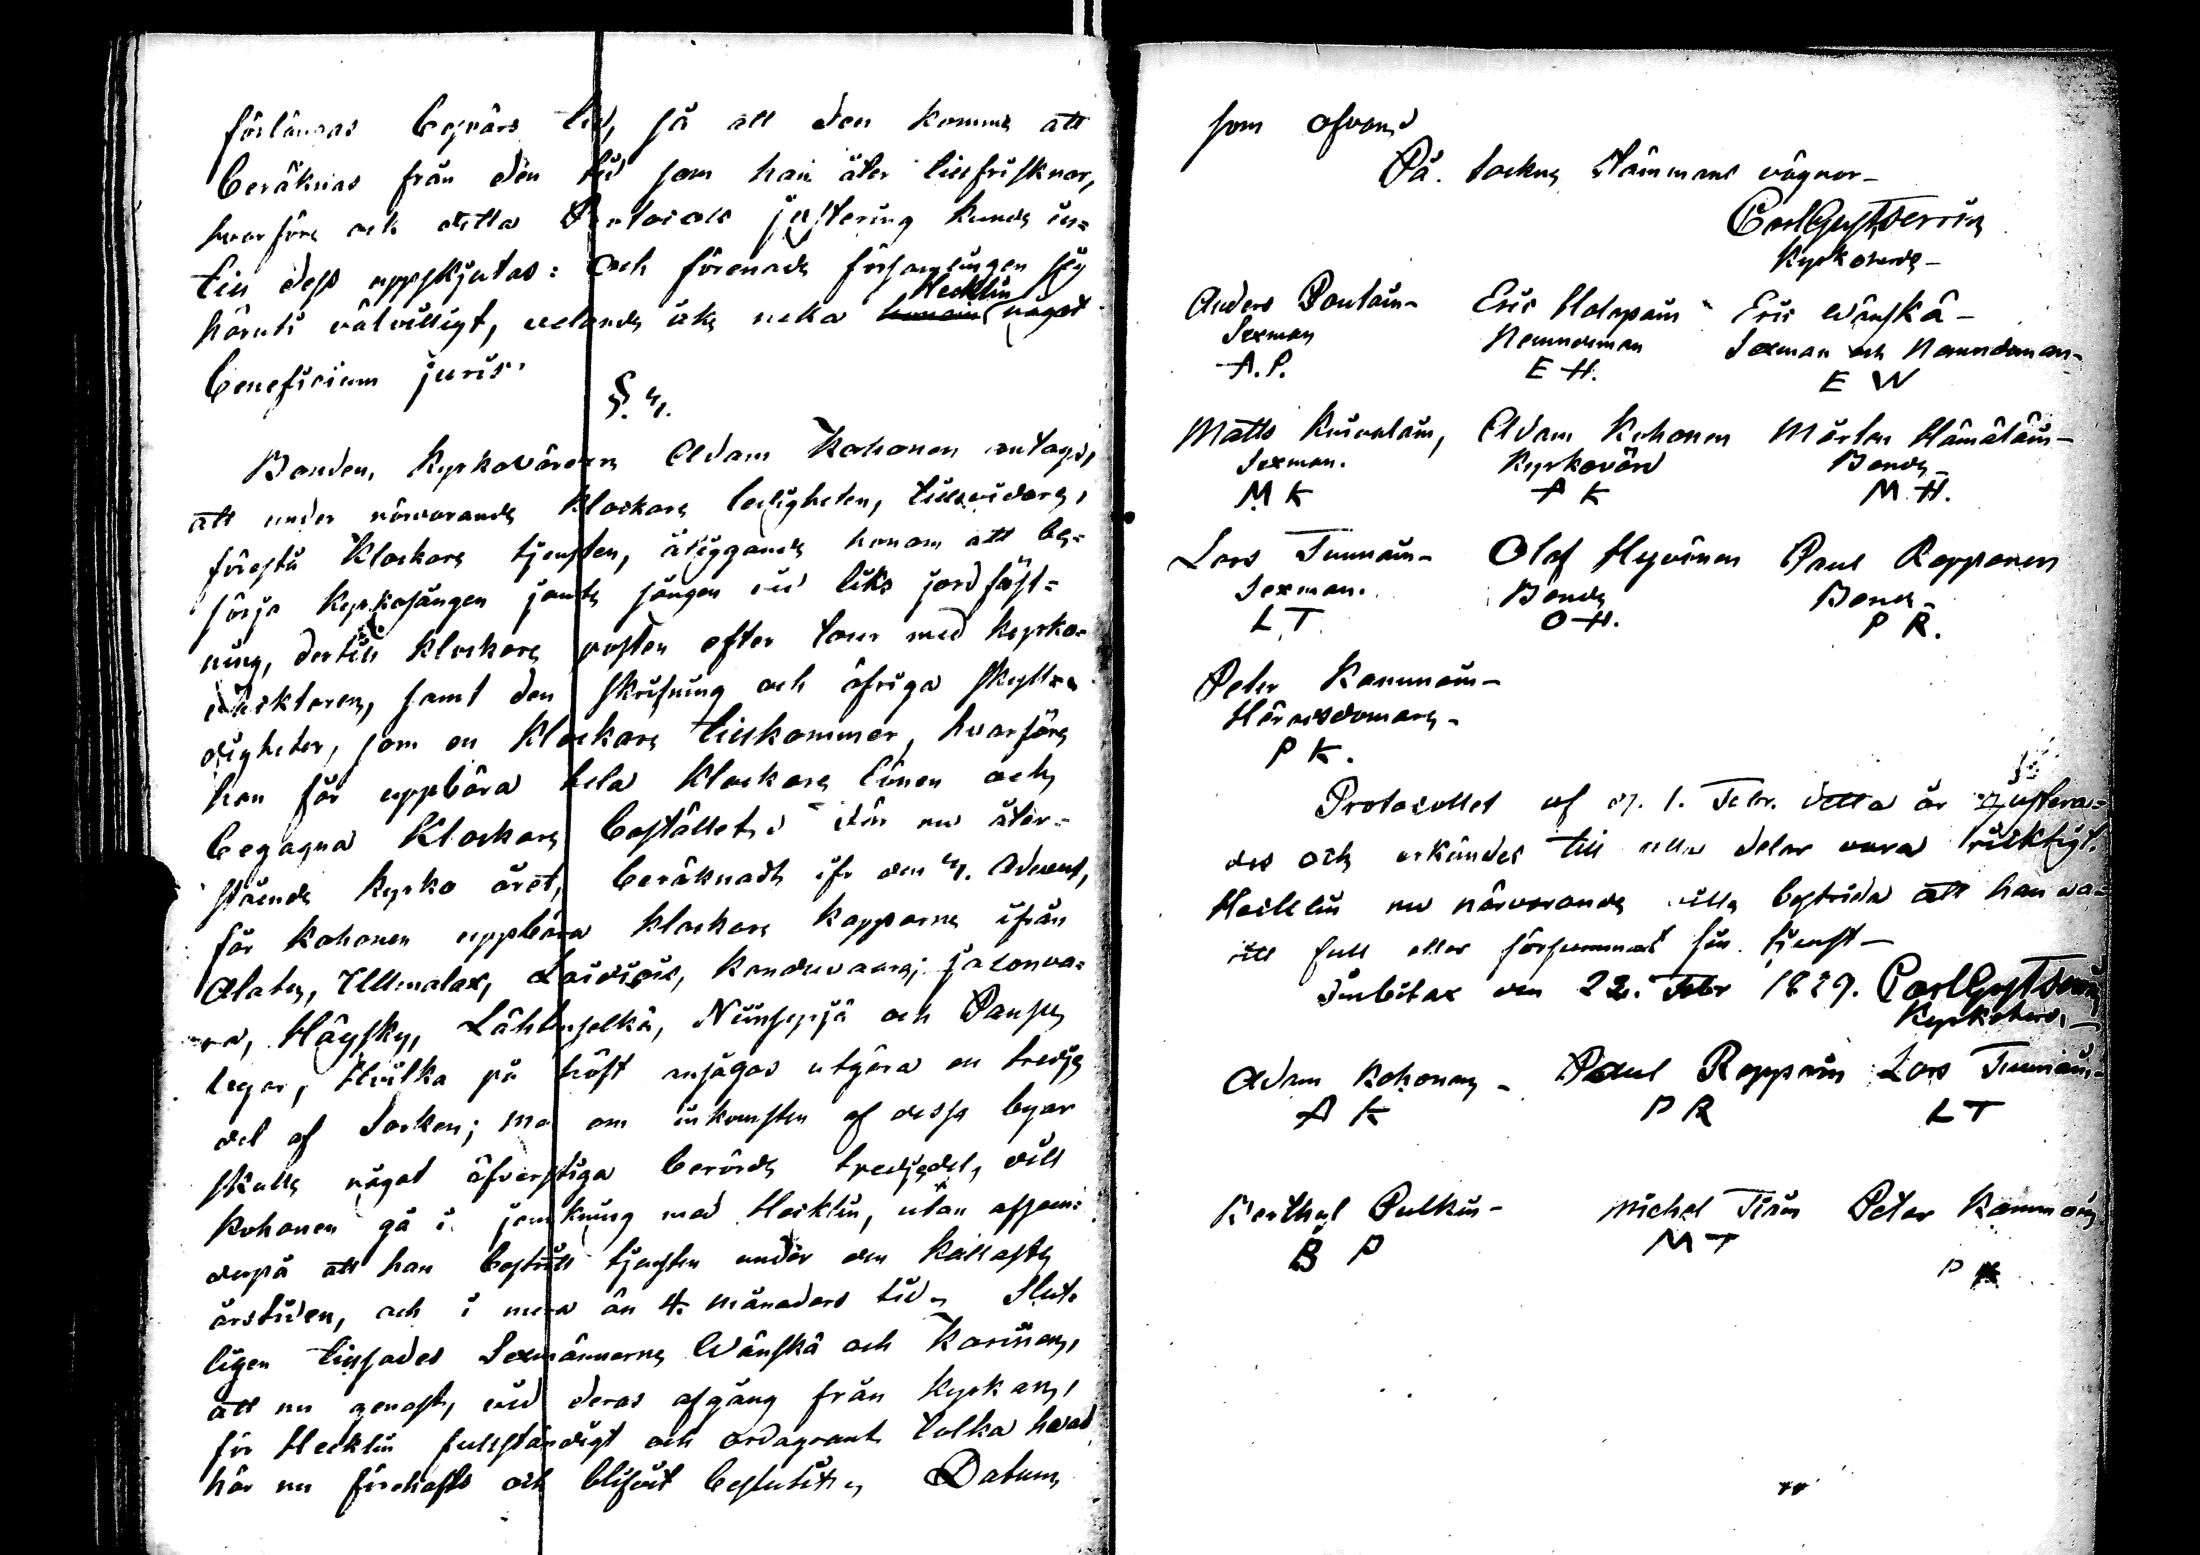 förlängas besvärs tid, så att den komme att
beräknas från den tid som han åter tillfrisknar,
hvarföre och detta Protocolls justering kunde in-
till dess uppskjutas: och förenade församlingen sig
häruti välvilligt, velande icke neka Hecklin något
beneficium juris.
§. 4.
Bonden, Kyrkovärden Adam Kohonen antogs,
att under närvarande Klockare ledigheten, tillsvidare,
förestå Klockare tjensten, åliggande honom att be-
sörja Kyrkosången jemte sången vid liks jordfäst-
ning, dertill Klockare posten efter tour med Kyrko-
inspectoren, samt den skrifning och öfriga skyl-
digheter, som en Klockare tillkommer, hvarföre
han får uppbära hela Klockare lönen och
begagna Klockare bostället. det nu åter-
stående Kyrko året, beräknadt ifr den 4. Advent,
får Kohonen uppbära Klockare kapporne ifrån
Alaby, Ullmalax, Kanduvaara; Jalonva-
ra, Häysky, Lähtenselkä, Niinsyrjä och Paussu
byar, hvilka på höft ansågos utgöra en tredje
del af Socken; men om inkomsten af dessa byar
skulle något öfverstiga berörde tredjedel, vill
Kohonen gå i jemkning med Hecklin, utan afseen-
de på att han bestridt tjensten under den kallaste
årstiden, och i mera än 4. månaders tid. Slut-
ligen tillsades Sexmännerne Wänskä och Karinen,
att nu genast, vid deras afgång från kyrkan,
för Hecklin fullständigt och ordagrant tolka hvad
här nu förehafts och blifvit beslutit. Datum
som ofvan.
På Sockne Stämmans vägnar
Carl Gust
Kyrkoherde
Anders Poutain Eric Holopain Eric Wänskä
Sexman Nemndeman Sexman och Nemndeman
A. P. E H. E W
Matts Kuivalain, Adam Kohonen Mårten Hämäläin
Sexman. Kyrkovärd Bonde
M K A K M. H.
Lars Tunnain Olof Hyvönen Paul Ropponen
Sexman. Bonde Bonde
L T. O H. P R.
Peter Kammoin
Häradsdomare
P K.
Protocollet af d. 1. Febr. detta år justera-
des och erkändes till alla delar vara riktigt.
Hecklin nu närvarande ville bestrida att han va-
rit full eller försummat sin tjenst
Imbilax den 22. Febr 1829. Carl Gust
Kyrkoherde
Adam Kohonen Paul Roppoin Lars Tunnain
A K P R L T
Berthel Pulkin Michel Tiain Peter Kammoin
B P M T P K